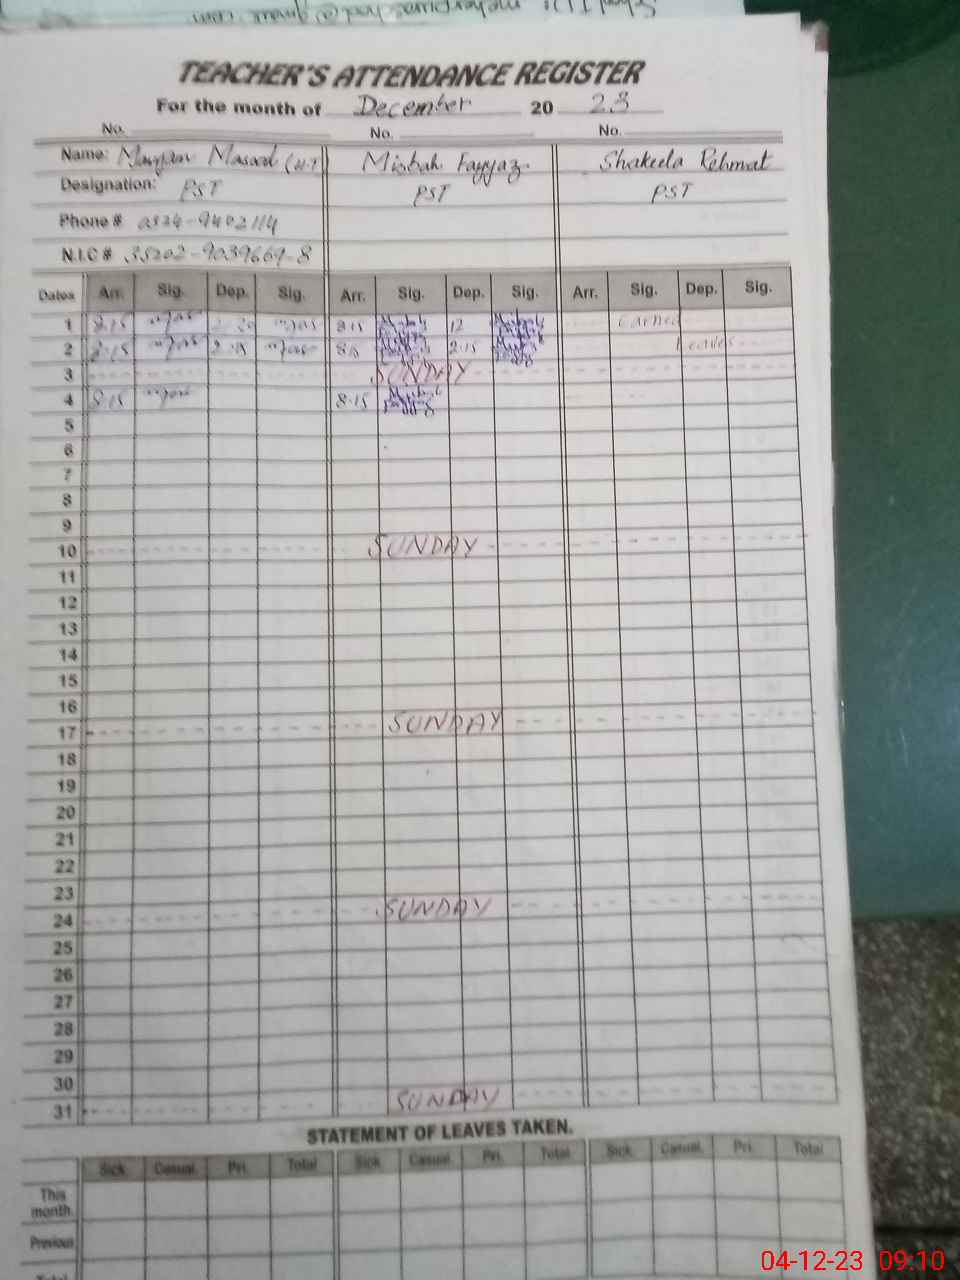 TEACHER'S ATTENDANCE REGISTER
For the month of December 20 23
No. No. No.
Name: Masood (H.T) Misbah Fayyaz Shakeela Rehmat
Designation: PST PST PST
Phone #
N.I.C # 35202-9039669-8
Dates Arr. Sig. Dep. Sig. Arr. Sig. Dep. Sig. Arr. Sig. Dep. Sig.
1 8:15 8:15 12 Earned
2 8:15 2:15 2:15 Leaves
3 SUNDAY
4 8:15 8:15
5
6
7
8
9
10 SUNDAY
11
12
13
14
15
16
17 SUNDAY
18
19
20
21
22
23
24 SUNDAY
25
26
27
28
29
30
31 SUNDAY
STATEMENT OF LEAVES TAKEN.
Sick Casual Pri. Total Sick Casual Pri. Total Sick Casual Pri. Total
This
month.
Previous
Total
04-12-23 09:10